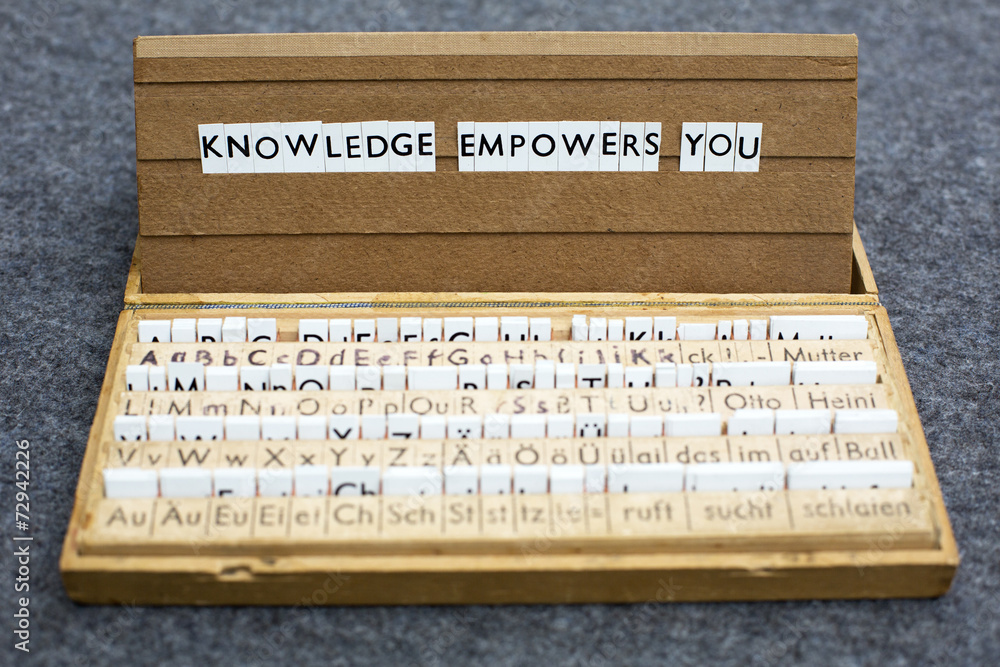 KNOWLEDGE EMPOWERS YOU
A a B b C c D d E e F f G g H h I i J j K k ck ! - Mutter
L l M m N n O o P p Qu R r S s ß T t U u ? Otto Heini
V v W w X x Y y Z z Ä ä Ö ö Ü ü ai das im auf Ball
Au Äu Eu Ei ei Ch Sch St st tz ie = ruft sucht schlafen
Adobe Stock | #72942226